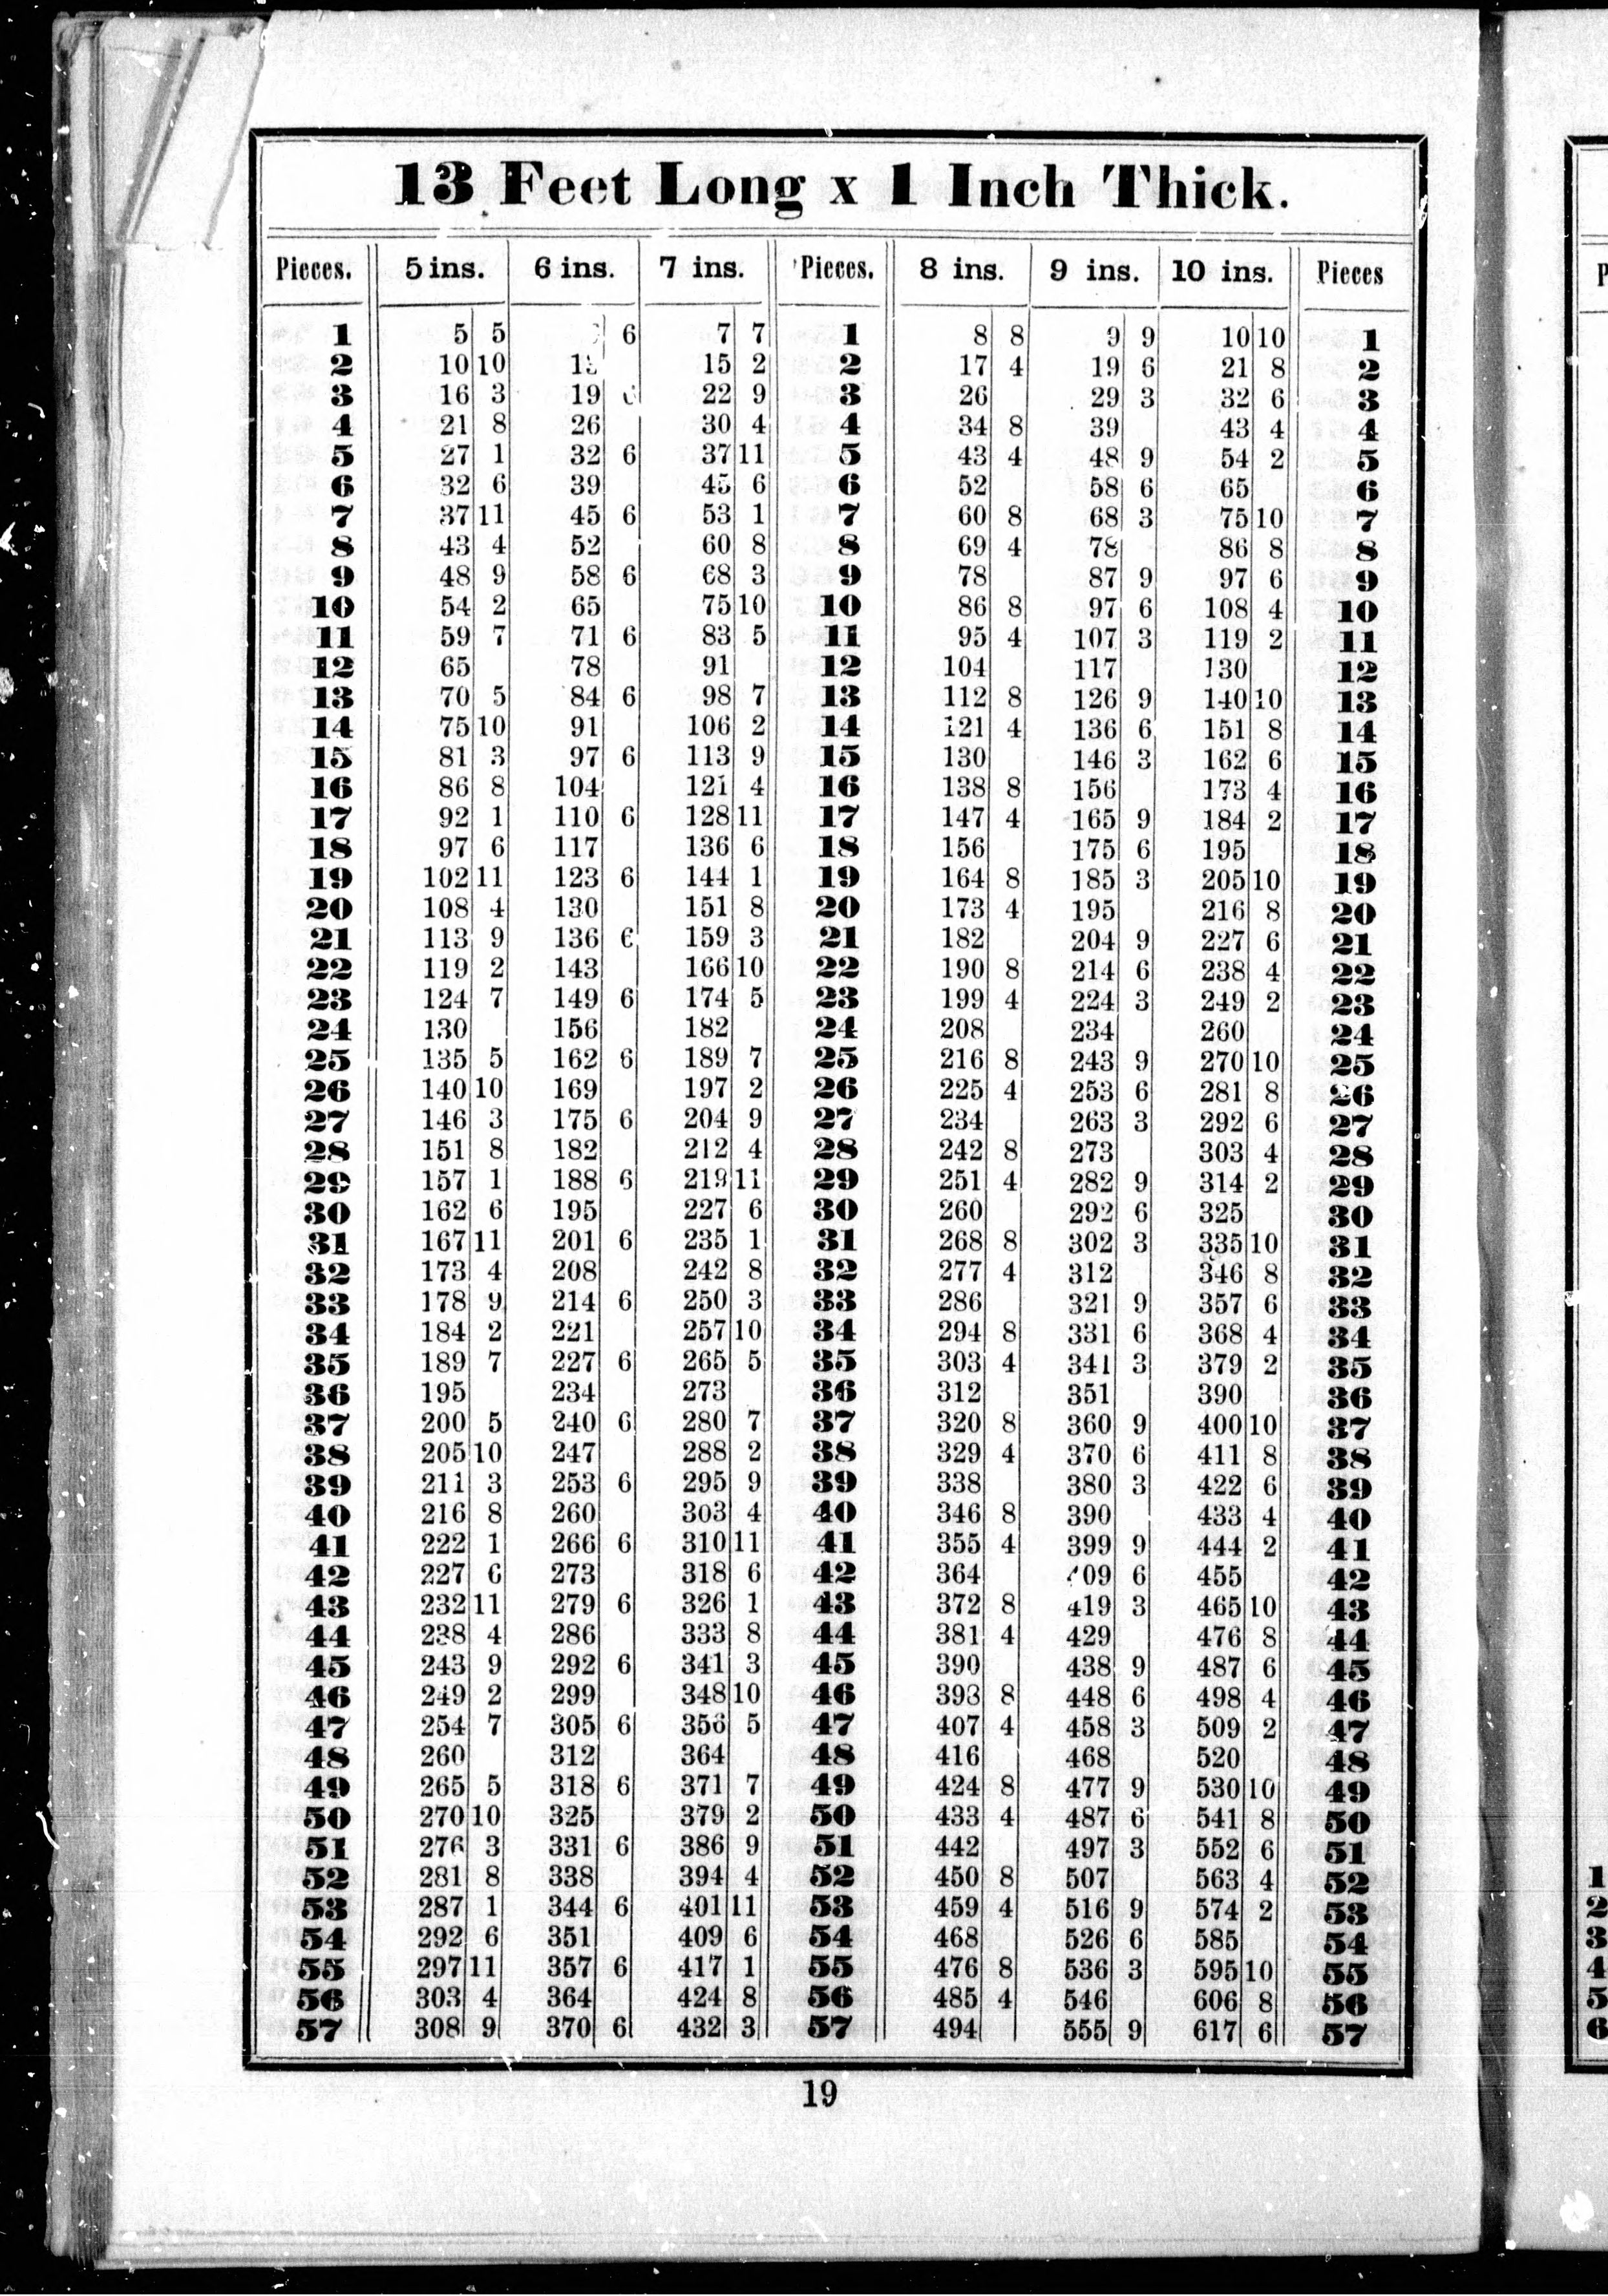 13 Feet Long x 1 Inch Thick.
Pieces. 5 ins. 6 ins. 7 ins. Pieces. 8 ins. 9 ins. 10 ins. Pieces
1 5 5 6 7 7 1 8 8 9 9 10 10 1
2 10 10 15 2 2 17 4 19 6 21 8 2
3 16 3 19 22 9 3 26 29 3 32 6 3
4 21 8 26 30 4 4 34 8 39 43 4 4
5 27 1 32 6 37 11 5 43 4 48 9 54 2 5
6 32 6 39 45 6 6 52 58 6 65 6
7 37 11 45 6 53 1 7 60 8 68 3 75 10 7
8 43 4 52 60 8 8 69 4 78 86 8 8
9 48 9 58 6 68 3 9 78 87 9 97 6 9
10 54 2 65 75 10 10 86 8 97 6 108 4 10
11 59 7 71 6 83 5 11 95 4 107 3 119 2 11
12 65 78 91 12 104 117 130 12
13 70 5 84 6 98 7 13 112 8 126 9 140 10 13
14 75 10 91 106 2 14 121 4 136 6 151 8 14
15 81 3 97 6 113 9 15 130 146 3 162 6 15
16 86 8 104 121 4 16 138 8 156 173 4 16
17 92 1 110 6 128 11 17 147 4 165 9 184 2 17
18 97 6 117 136 6 18 156 175 6 195 18
19 102 11 123 6 144 1 19 164 8 185 3 205 10 19
20 108 4 130 151 8 20 173 4 195 216 8 20
21 113 9 136 6 159 3 21 182 204 9 227 6 21
22 119 2 143 166 10 22 190 8 214 6 238 4 22
23 124 7 149 6 174 5 23 199 4 224 3 249 2 23
24 130 156 182 24 208 234 260 24
25 135 5 162 6 189 7 25 216 8 243 9 270 10 25
26 140 10 169 197 2 26 225 4 253 6 281 8 26
27 146 3 175 6 204 9 27 234 263 3 292 6 27
28 151 8 182 212 4 28 242 8 273 303 4 28
29 157 1 188 6 219 11 29 251 4 282 9 314 2 29
30 162 6 195 227 6 30 260 292 6 325 30
31 167 11 201 6 235 1 31 268 8 302 3 335 10 31
32 173 4 208 242 8 32 277 4 312 346 8 32
33 178 9 214 6 250 3 33 286 321 9 357 6 33
34 184 2 221 257 10 34 294 8 331 6 368 4 34
35 189 7 227 6 265 5 35 303 4 341 3 379 2 35
36 195 234 273 36 312 351 390 36
37 200 5 240 6 280 7 37 320 8 360 9 400 10 37
38 205 10 247 288 2 38 329 4 370 6 411 8 38
39 211 3 253 6 295 9 39 338 380 3 422 6 39
40 216 8 260 303 4 40 346 8 390 433 4 40
41 222 1 266 6 310 11 41 355 4 399 9 444 2 41
42 227 6 273 318 6 42 364 6 455 42
43 232 11 279 6 326 1 43 372 8 419 3 465 10 43
44 238 4 286 333 8 44 381 4 429 476 8 44
45 243 9 292 6 341 3 45 390 438 9 487 6 45
46 249 2 299 348 10 46 8 448 6 498 4 46
47 254 7 305 6 356 5 47 407 4 458 3 509 2 47
48 260 312 364 48 416 468 520 48
49 265 5 318 6 371 7 49 424 8 477 9 530 10 49
50 270 10 325 379 2 50 433 4 487 6 541 8 50
51 276 3 331 6 386 9 51 442 497 3 552 6 51
52 281 8 338 394 4 52 450 8 507 563 4 52
53 287 1 344 6 401 11 53 459 4 516 9 574 2 53
54 292 6 351 409 6 54 468 526 6 585 54
55 297 11 357 6 417 1 55 476 8 536 3 595 10 55
56 303 4 364 424 8 56 485 4 546 606 8 56
57 308 9 370 6 432 3 57 494 555 9 617 6 57
19
1
2
3
4
5
6